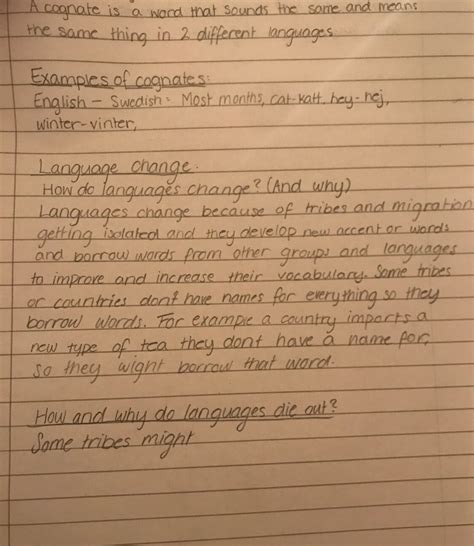 A cognate is a word that sounds the same and means
the same thing in 2 different languages
Examples of cognates:
English - Swedish: Most months, cat-katt, hey-hej,
winter-vinter,
Language change.
How do languages change? (And why)
Languages change because of tribes and migration
getting isolated and they develop new accent or words
and borrow words from other groups and languages
to improve and increase their vocabulary. Some tribes
or countries dont have names for everything so they
borrow words. For example a country imports a
new type of tea they dont have a name for,
so they wight borrow that word.
How and why do languages die out?
Some tribes might